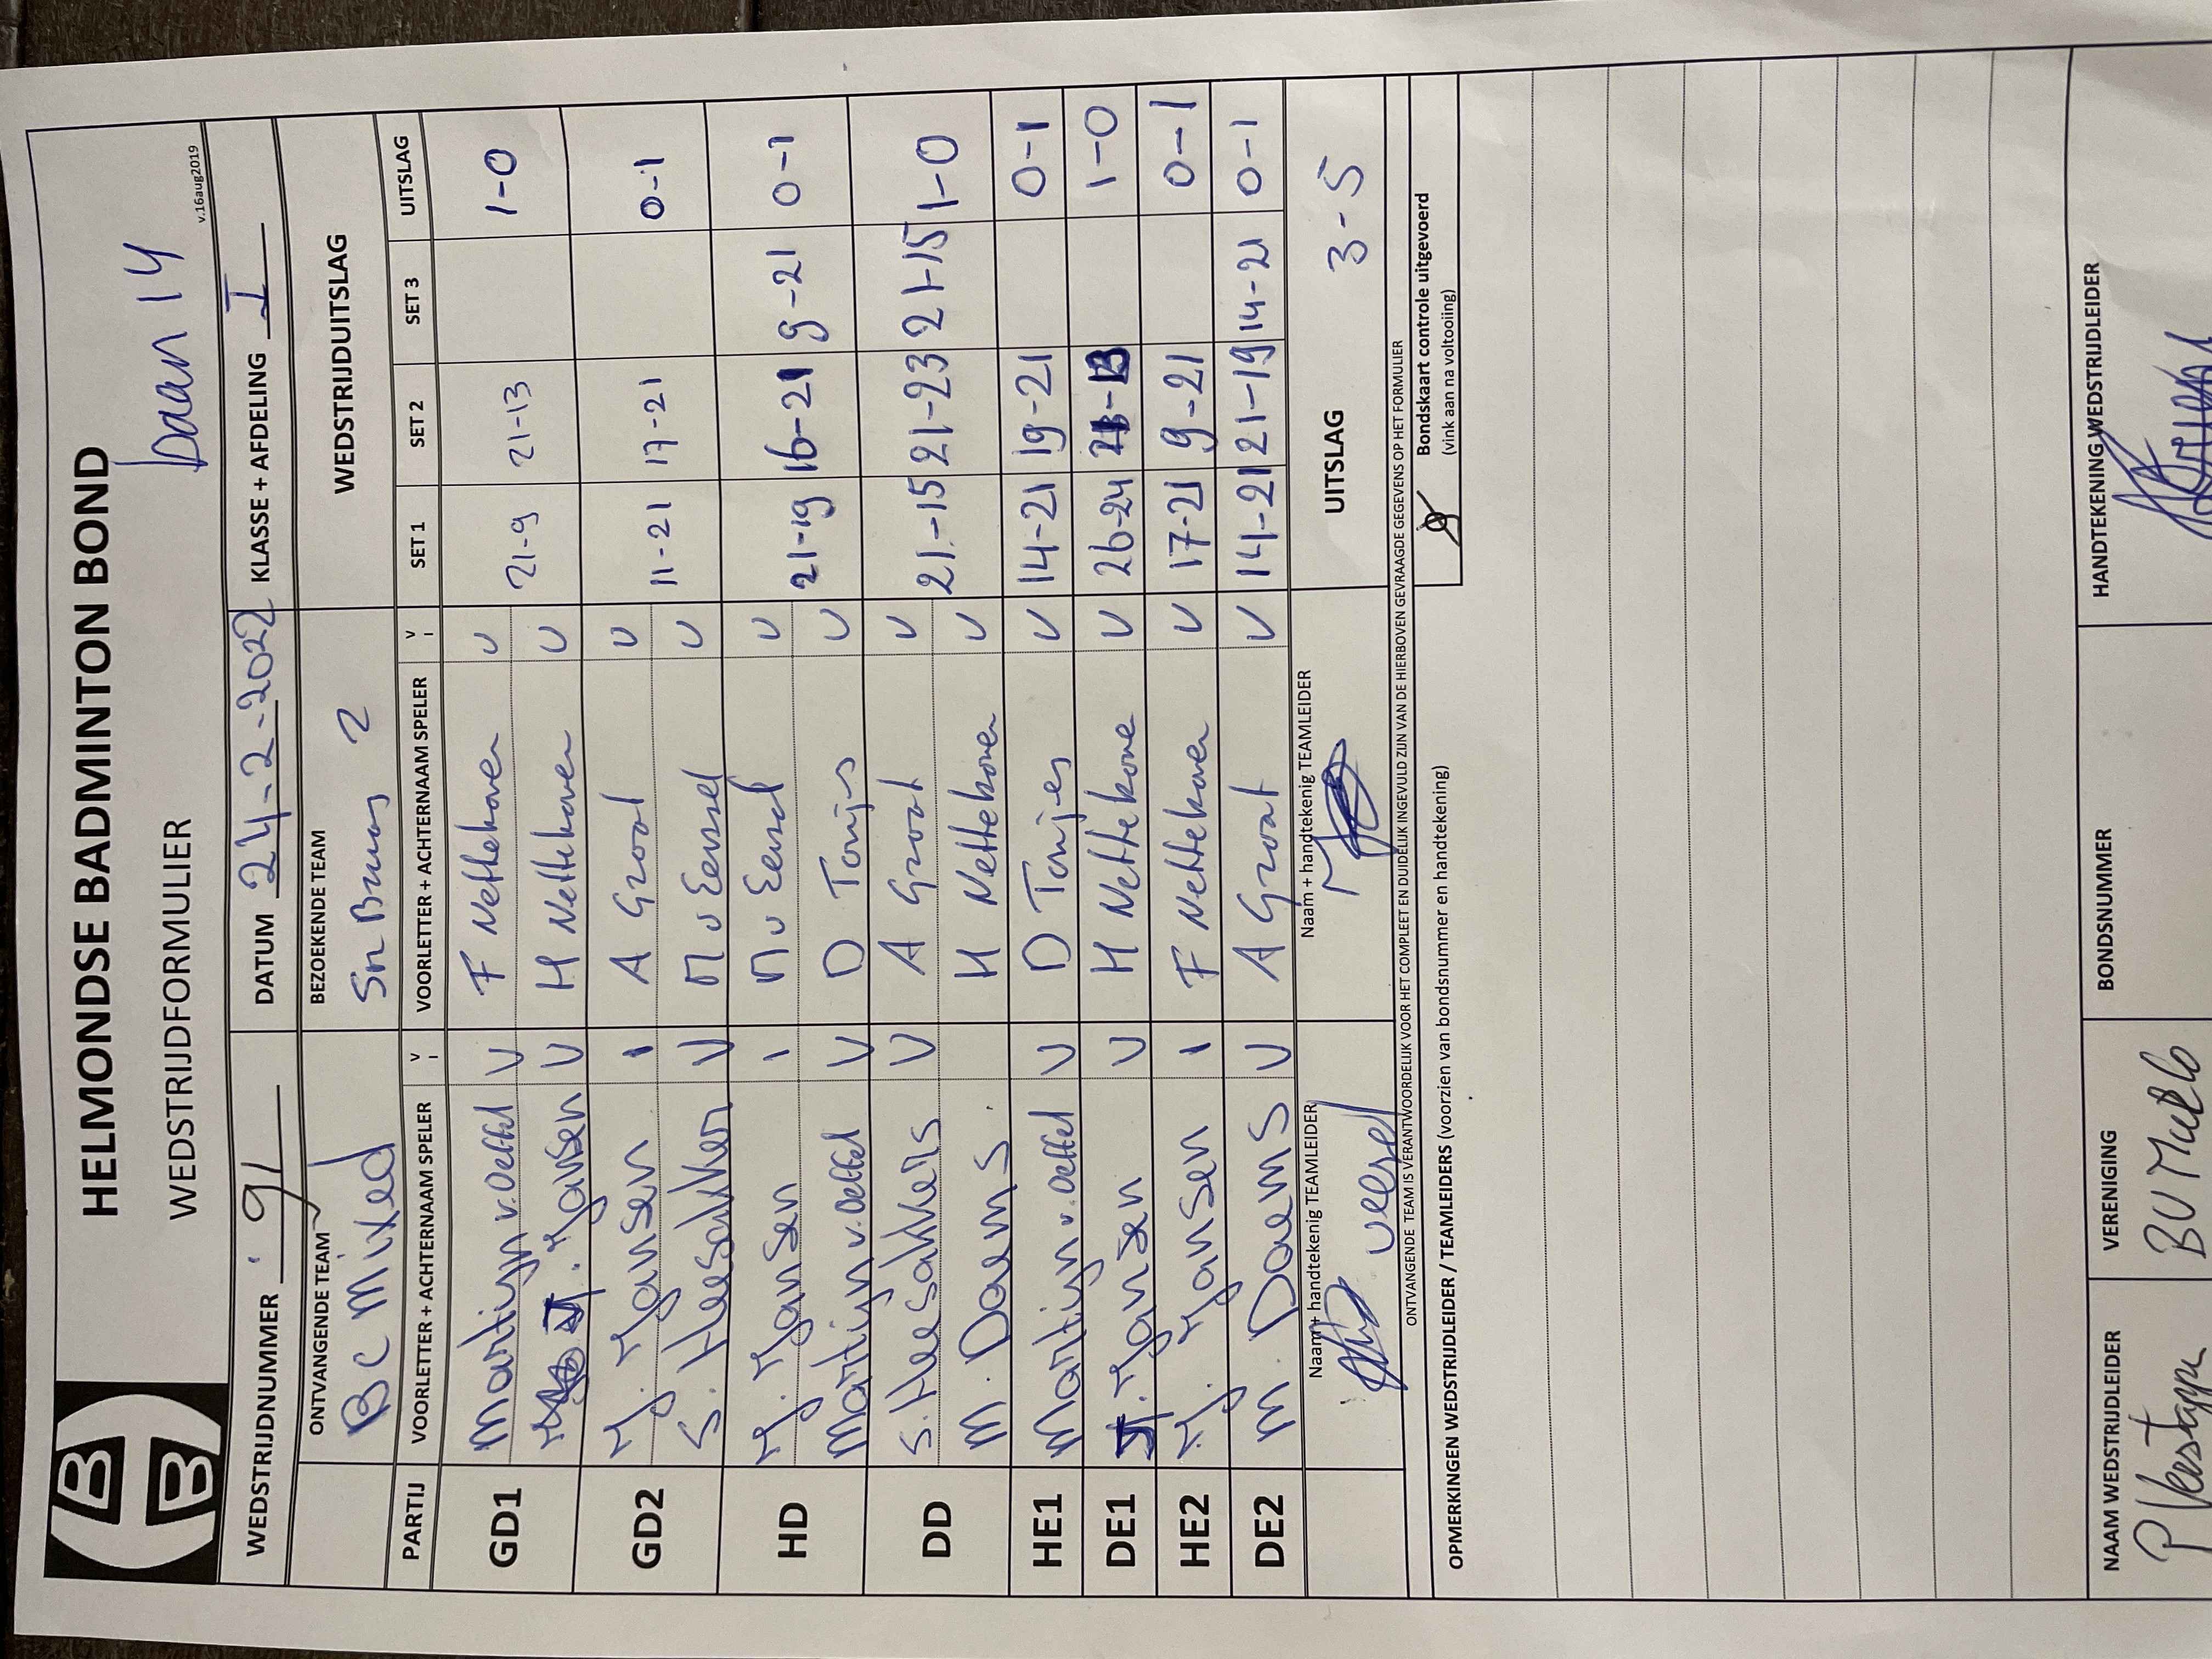 HELMONDSE BADMINTON BOND
WEDSTRIJDFORMULIER
baan 14
v.16aug2019
WEDSTRIJDNUMMER 91 DATUM 24-2-2022 KLASSE + AFDELING I
ONTVANGENDE TEAM BEZOEKENDE TEAM WEDSTRIJDUITSLAG
BC Mixed 2
PARTIJ VOORLETTER + ACHTERNAAM SPELER V I VOORLETTER + ACHTERNAAM SPELER V I SET 1 SET 2 SET 3 UITSLAG
GD1 Martijn v. Oeffel V F Nettekoven V 21-9 21-13 1-0
J. Jansen V H Nettekoven V
GD2 J. Jansen I A Groot V 11-21 17-21 0-1
S. Heesakkers V M v Eerssel V
HD J. Jansen I M v Eerssel V 21-19 16-21 9-21 0-1
Martijn v. Oeffel V D Tonjes V
DD S. Heesakkers V A Groot V 21-15 21-23 21-15 1-0
M. Daems H Nettekoven V
HE1 Martijn v. Oeffel V D Tonjes V 14-21 19-21 0-1
DE1 J. Jansen V H Nettekove V 26-24 1-0
HE2 J. Jansen I F Nettekoven V 17-21 9-21 0-1
DE2 M. Daems V A Groot V 14-21 21-19 14-21 0-1
Naam + handtekenig TEAMLEIDER Naam + handtekenig TEAMLEIDER UITSLAG 3-5
ONTVANGENDE TEAM IS VERANTWOORDELIJK VOOR HET COMPLEET EN DUIDELIJK INGEVULD ZIJN VAN DE HIERBOVEN GEVRAAGDE GEGEVENS OP HET FORMULIER
Bondskaart controle uitgevoerd
(vink aan na voltooiing)
OPMERKINGEN WEDSTRIJDLEIDER / TEAMLEIDERS (voorzien van bondsnummer en handtekening)
NAAM WEDSTRIJDLEIDER VERENIGING BONDSNUMMER HANDTEKENING WEDSTRIJDLEIDER
P Verstappen BV Mierlo